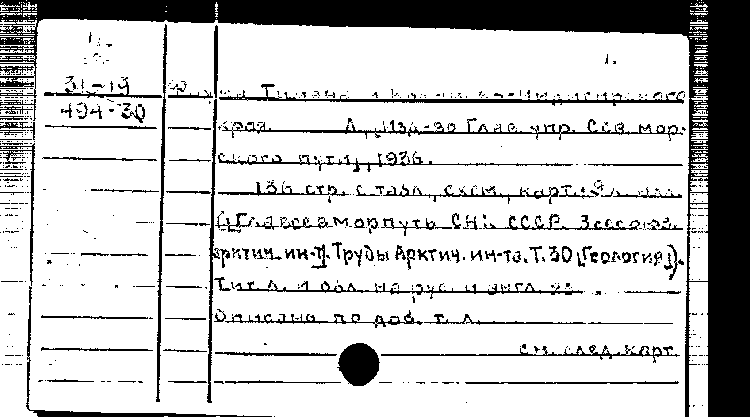 1.
31-19
494-30
Фауна Тимана и Колымско-Индигирского
края. Л., Изд-во Глав. упр. Сев. мор-
ского пути, 1936.
136 стр. с табл., схем., карт.; 9 л. илл.
(Главсевморпуть СНК СССР. Всесоюз.
арктич. ин-т. Труды Арктич. ин-та. Т. 30 [Геология]).
Тит. л. и обл. на рус. и англ. яз.
Описано по доб. т. л.
см. след. карт.